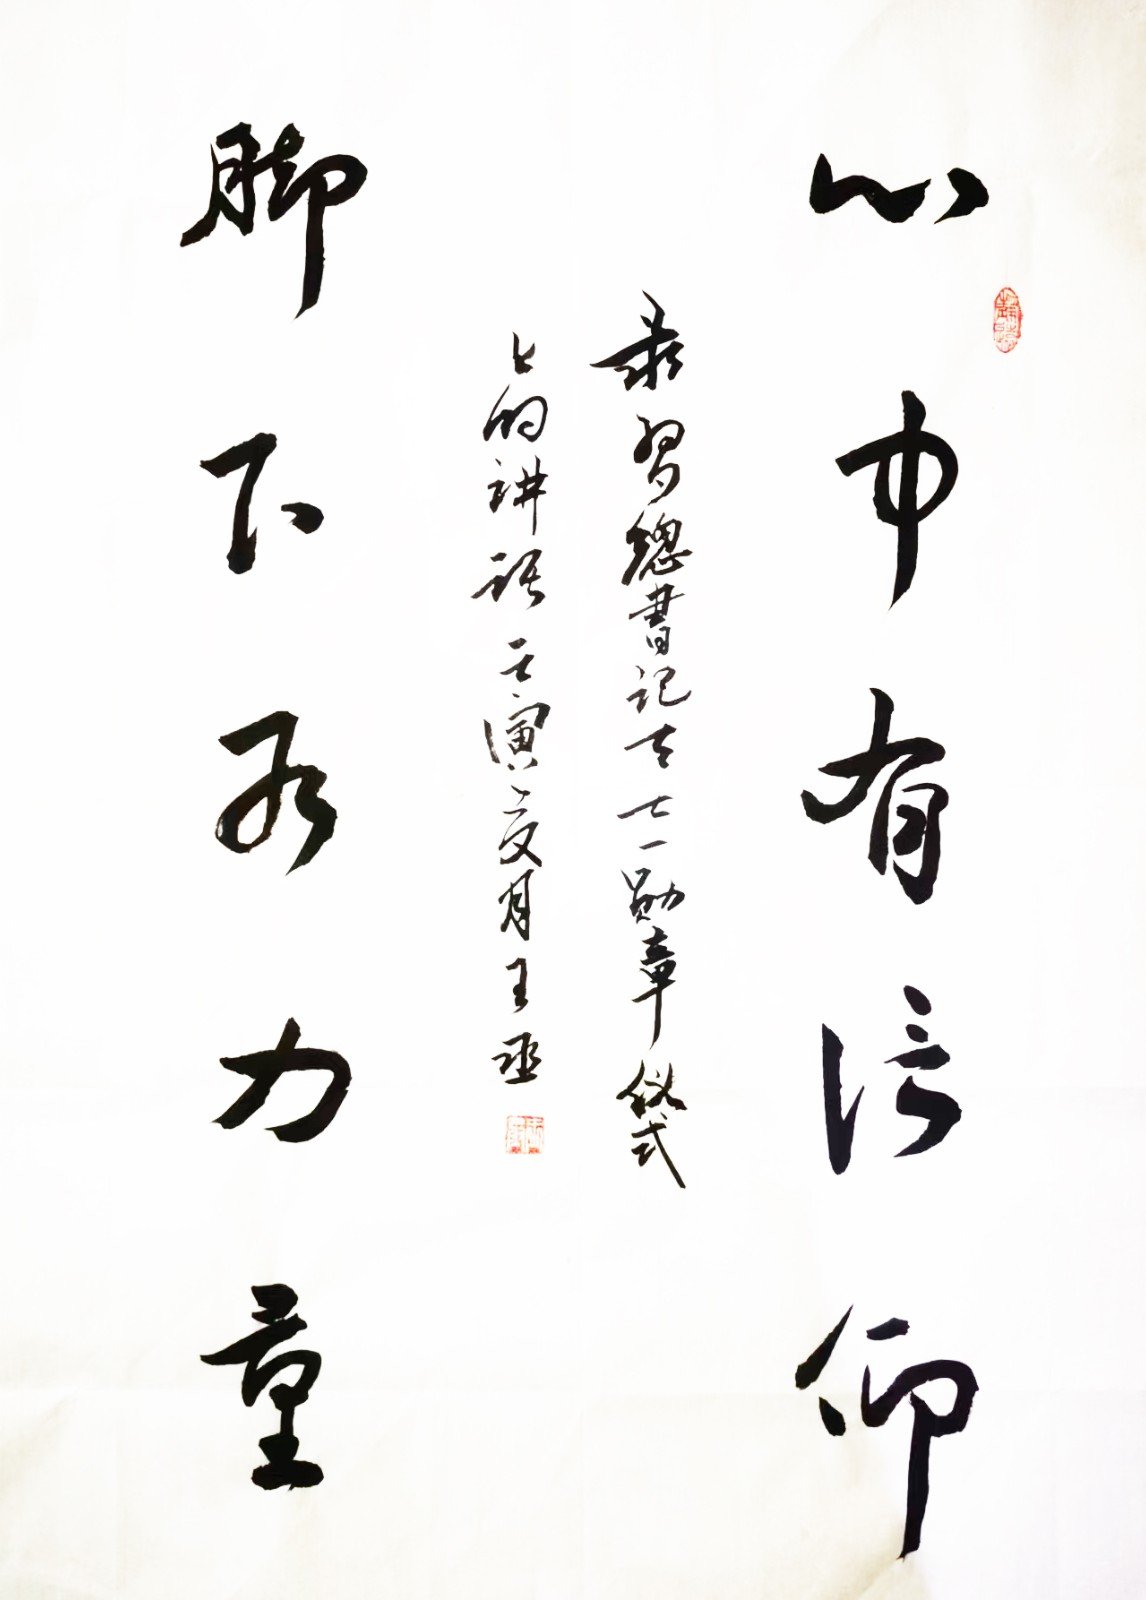 心中有信仰
录习總書记在七一勋章仪式
上的讲话壬寅夏月王丞
脚下有力量